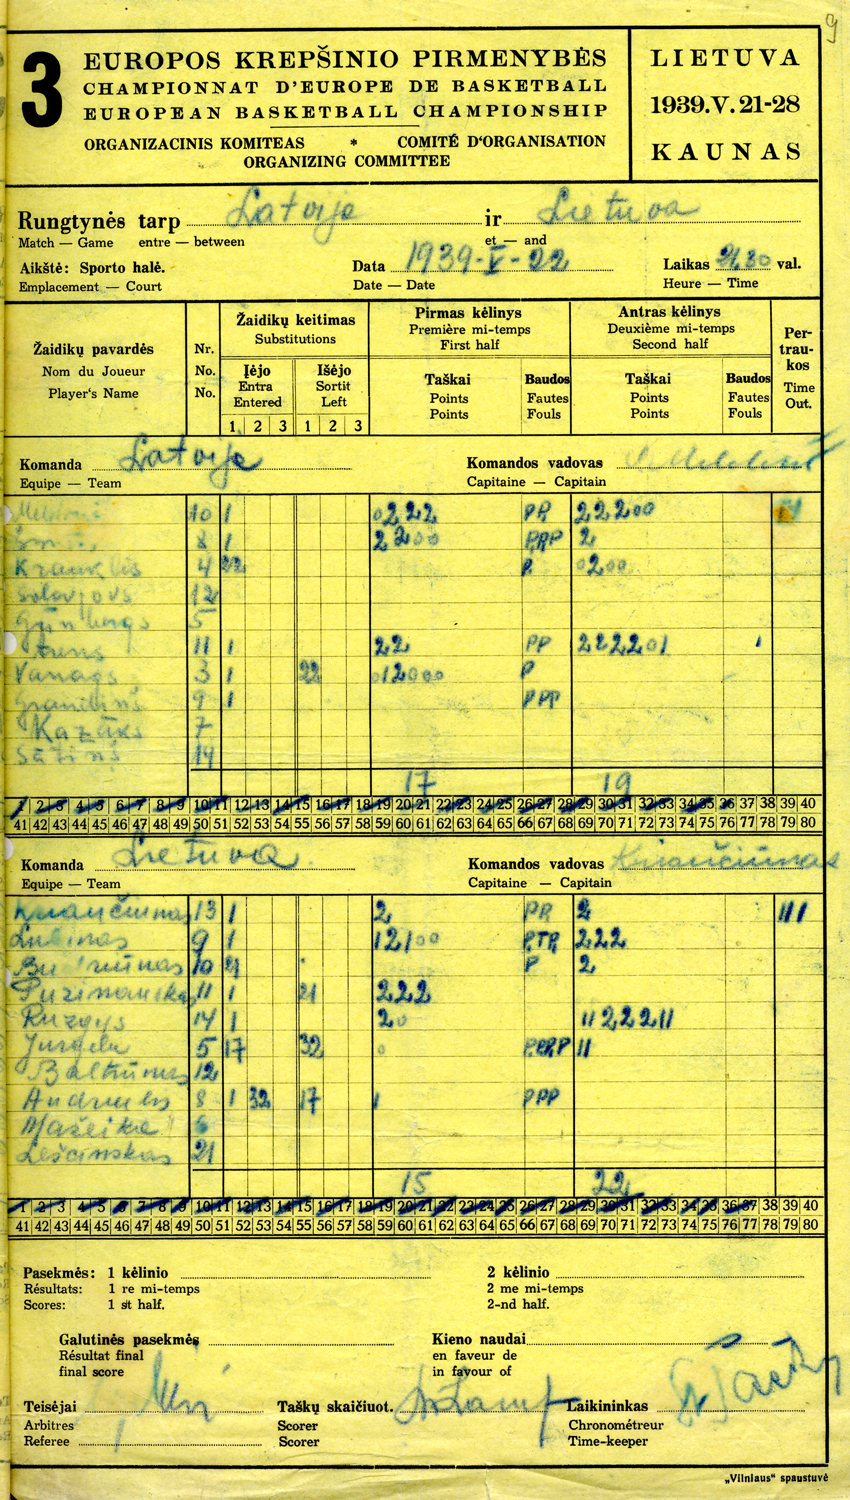 9
3
EUROPOS KREPŠINIO PIRMENYBĖS
CHAMPIONNAT D'EUROPE DE BASKETBALL
EUROPEAN BASKETBALL CHAMPIONSHIP
ORGANIZACINIS KOMITEAS * COMITÉ D'ORGANISATION
ORGANIZING COMMITTEE
LIETUVA
1939.V.21-28
KAUNAS
Rungtynės tarp Latvija ir Lietuva
Match — Game entre — between et — and
Aikštė: Sporto halė. Data 1939-V-22 Laikas val.
Emplacement — Court Date — Date Heure — Time
Žaidikų pavardės
Nom du Joueur
Player's Name
Nr.
No.
No.
Žaidikų keitimas
Substitutions
Įėjo
Entra
Entered
1 2 3
Išėjo
Sortit
Left
1 2 3
Pirmas kėlinys
Première mi-temps
First half
Taškai
Points
Points
Baudos
Fautes
Fouls
Antras kėlinys
Deuxième mi-temps
Second half
Taškai
Points
Points
Baudos
Fautes
Fouls
Per-
trau-
kos
Time
Out.
Komanda Latvija Komandos vadovas
Equipe — Team Capitaine — Capitain
10 1 0222 PP 22200
8 1 2200 PPP 2
Krauklis 4 22 P 0200
Solovjovs 12
5
11 1 22 PP 222201
Vanags 3 1 22 012000 P
9 1 PPP
Kazāks 7
14
17 19
1 2 3 4 5 6 7 8 9 10 11 12 13 14 15 16 17 18 19 20 21 22 23 24 25 26 27 28 29 30 31 32 33 34 35 36 37 38 39 40
41 42 43 44 45 46 47 48 49 50 51 52 53 54 55 56 57 58 59 60 61 62 63 64 65 66 67 68 69 70 71 72 73 74 75 76 77 78 79 80
Komanda Lietuva. Komandos vadovas Kriaučiūnas
Equipe — Team Capitaine — Capitain
Kriaučiunas 13 1 2 PP 2 111
Lubinas 9 1 12100 222
Budriūnas 10 21 P 2
Puzinauskas 11 1 21 222
Ruzgys 14 1 20 1122211
Jurgėla 5 17 32 0 11
Baltrūnas 12
Andrulis 8 1 32 17 1 PPP
Mažeika 6
Leščinskas 21
15 22
1 2 3 4 5 6 7 8 9 10 11 12 13 14 15 16 17 18 19 20 21 22 23 24 25 26 27 28 29 30 31 32 33 34 35 36 37 38 39 40
41 42 43 44 45 46 47 48 49 50 51 52 53 54 55 56 57 58 59 60 61 62 63 64 65 66 67 68 69 70 71 72 73 74 75 76 77 78 79 80
Pasekmės: 1 kėlinio 2 kėlinio
Résultats: 1 re mi-temps 2 me mi-temps
Scores: 1 st half. 2-nd half.
Galutinės pasekmės Kieno naudai
Résultat final en faveur de
final score in favour of
Teisėjai Taškų skaičiuot. Laikininkas
Arbitres Scorer Chronométreur
Referee Scorer Time-keeper
„Vilniaus" spaustuvė